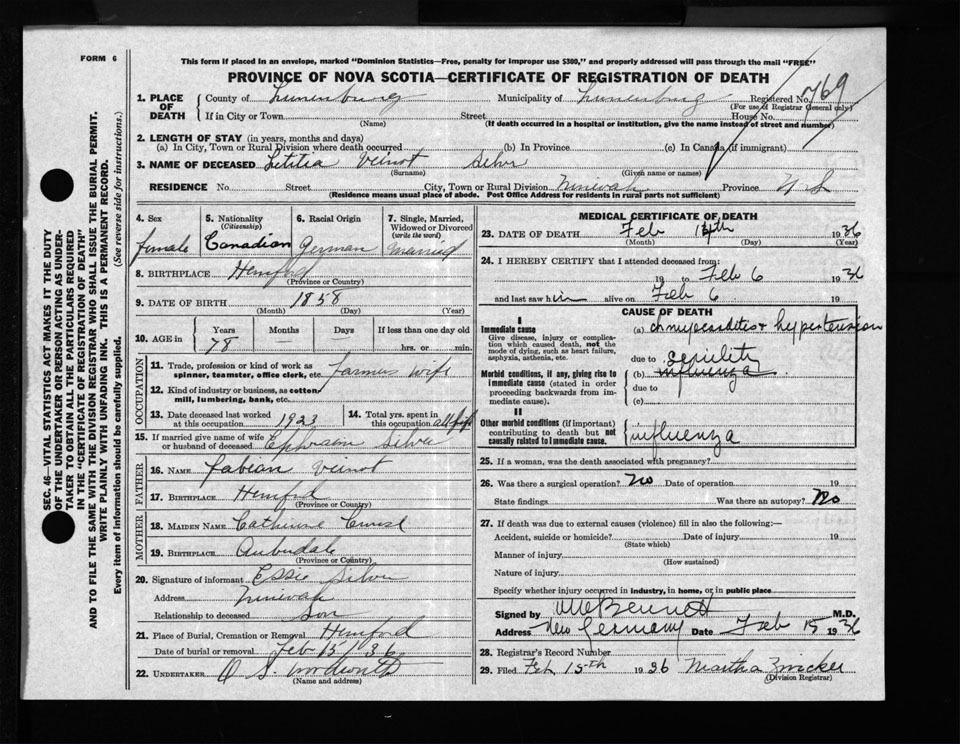 FORM 6
This form if placed in an envelope, marked "Dominion Statistics—Free, penalty for improper use $300," and properly addressed will pass through the mail "FREE"
PROVINCE OF NOVA SCOTIA—CERTIFICATE OF REGISTRATION OF DEATH
1. PLACE OF DEATH County of Lunenburg Municipality of Lunenburg Registered No. 769
(For use of Registrar General only)
If in City or Town Street House No.
(Name) (If death occurred in a hospital or institution, give the name instead of street and number)
2. LENGTH OF STAY (in years, months and days)
(a) In City, Town or Rural Division where death occurred (b) In Province (c) In Canada (if immigrant)
3. NAME OF DECEASED Letitia Veinot Silver
(Surname) (Given name or names)
RESIDENCE No. Street City, Town or Rural Division Ninevah Province N S
(Residence means usual place of abode. Post Office Address for residents in rural parts not sufficient)
4. Sex female
5. Nationality (Citizenship) Canadian
6. Racial Origin German
7. Single, Married, Widowed or Divorced (write the word) Married
8. BIRTHPLACE Hemford
(Province or Country)
9. DATE OF BIRTH 1858
(Month) (Day) (Year)
10. AGE in Years Months Days If less than one day old
78 — — hrs. or min.
OCCUPATION
11. Trade, profession or kind of work as spinner, teamster, office clerk, etc. Farmers Wife
12. Kind of industry or business, as cotton mill, lumbering, bank, etc.
13. Date deceased last worked at this occupation 1923
14. Total yrs. spent in this occupation all life
15. If married give name of wife or husband of deceased Ephraim Silver
FATHER
16. NAME Fabian Veinot
17. BIRTHPLACE Hemford
(Province or Country)
MOTHER
18. MAIDEN NAME Catherine
19. BIRTHPLACE Auburndale
(Province or Country)
20. Signature of informant Essie Silver
Address Ninevah
Relationship to deceased Son
21. Place of Burial, Cremation or Removal Hemford
Date of burial or removal Feb 15/36
22. UNDERTAKER O S.
(Name and address)
MEDICAL CERTIFICATE OF DEATH
23. DATE OF DEATH Feb 14th 1936
(Month) (Day) (Year)
24. I HEREBY CERTIFY that I attended deceased from:
19 to Feb 6 1936
and last saw h alive on Feb 6 19
CAUSE OF DEATH
I
Immediate cause
Give disease, injury or complication which caused death, not the mode of dying, such as heart failure, asphyxia, asthenia, etc.
(a) ch myocarditis & hypertension
due to senility
Morbid conditions, if any, giving rise to immediate cause (stated in order proceeding backwards from immediate cause).
(b) influenza
due to
(c)
II
Other morbid conditions (if important) contributing to death but not causally related to immediate cause.
influenza
25. If a woman, was the death associated with pregnancy?
26. Was there a surgical operation? No Date of operation 19
State findings Was there an autopsy? No
27. If death was due to external causes (violence) fill in also the following:—
Accident, suicide or homicide? Date of injury 19
(State which)
Manner of injury
(How sustained)
Nature of injury
Specify whether injury occurred in industry, in home, or in public place
Signed by Bennett M.D.
Address New Germany Date Feb 15 1936
28. Registrar's Record Number
29. Filed Feb 15th 1936 Martha Zwicker
(Division Registrar)
SEC. 46—VITAL STATISTICS ACT MAKES IT THE DUTY
OF THE UNDERTAKER OR PERSON ACTING AS UNDER-
TAKER TO OBTAIN ALL THE PARTICULARS REQUIRED
IN THE "CERTIFICATE OF REGISTRATION OF DEATH"
AND TO FILE THE SAME WITH THE DIVISION REGISTRAR WHO SHALL ISSUE THE BURIAL PERMIT.
WRITE PLAINLY WITH UNFADING INK. THIS IS A PERMANENT RECORD.
Every item of information should be carefully supplied. (See reverse side for instructions.)